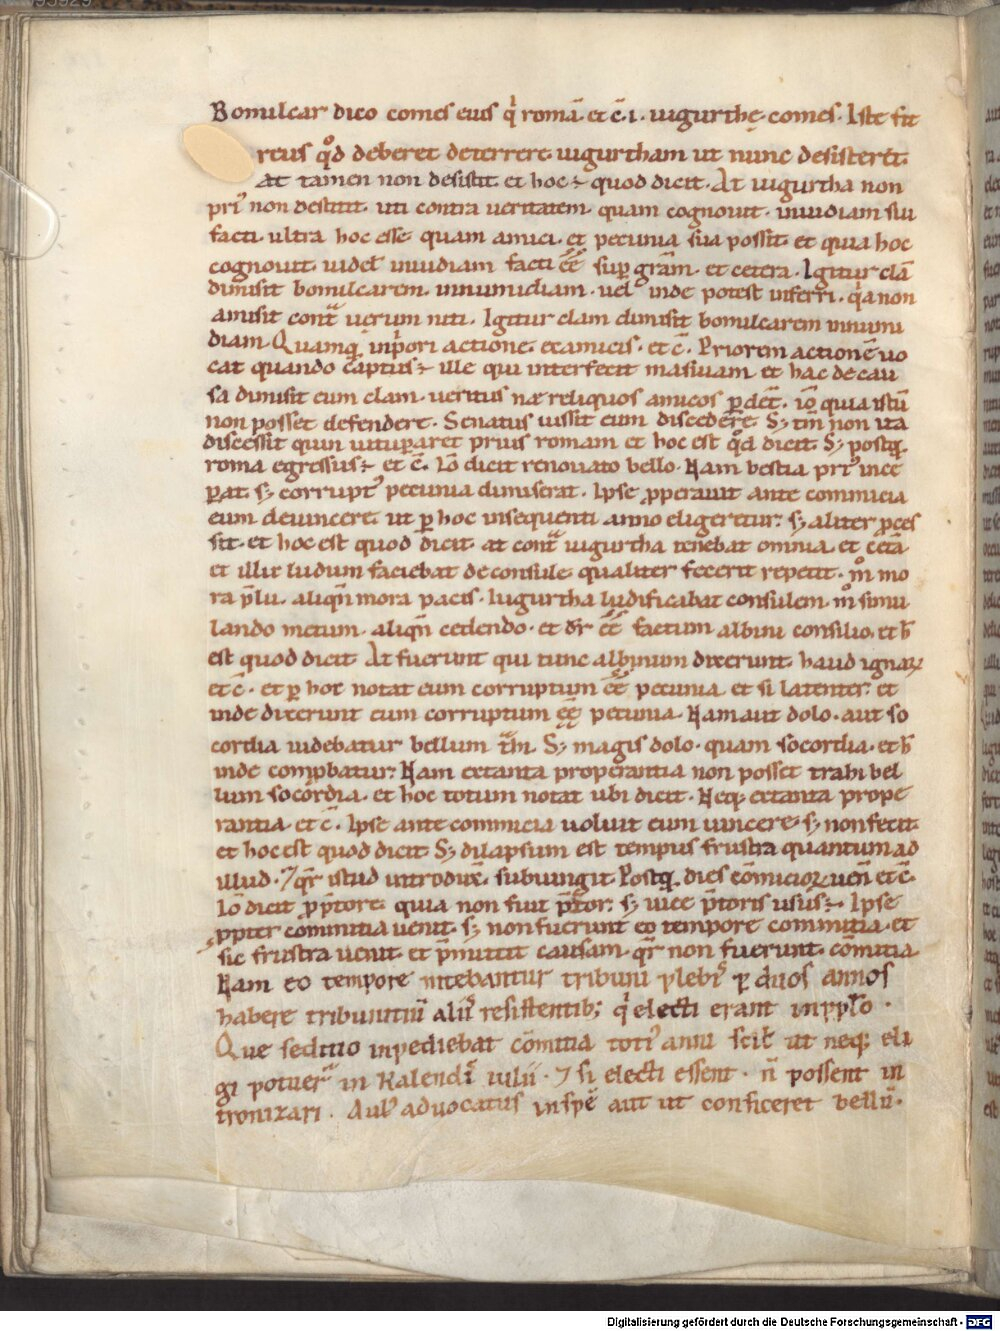 Bomulcar dico comes eius q̇ romã. et c̄. i. iugurthę comes. Iste fit
reus qͦd deberet deterrere iugurtham ut nunc desisteret.
at tamen non desistit. et hoc ÷ quod dicit. At iugurtha non
priꝰ non destitit. uti contra ueritatem. quam cognouit. inuidiam sui
facti. ultra hoc esse quam amici. et pecunia sua possit. et quia hoc
cognouit. uidet inuidiam facti eē̄ sup grām. et cetera. Igitur clã
dimisit bomulcarem. innumidiam. uel inde potest inferri. q̇a non
amisit contᷓ uerum niti. Igitur clam dimisit bomulcarem innumi
diam. Quamq̨ inp̍ori actione. examicis. et c̄. Priorem actionē uo
cat quando captus ÷ ille qui interfecit masiuam. et hac de cau
sa dimisit eum clam. ueritus ne reliquos amicos ꝑdet̄. iō quia istū
non posset defendere. Senatus iussit eum discedere. S; tm̄ non ita
discessit quin uituꝑaret prius romam et hoc est qͦd dicit. S; postq̨.
roma egressus ÷ et c̄. Iō dicit renouato bello. Nam bestia priꝰ ince
ꝑat. s; corruptꝰ pecunia dimiserat. Ipse ꝓperauit ante commicia
eum deuincere. ut ꝑ hoc insequenti anno eligeretur. s; aliter ꝓces
sit. et hoc est quod dicit. at contᷓ iugurtha tenebat omnia. et cetã
et illic ludum faciebat de consule. qualiter fecerit repetit. mͦ mo
ra p̄lii. aliqñ mora pacis. Iugurtha ludificabat consulem. mͦ simu
lando metum. aliqñ cedendo. et dr̄ eē̄ factum albini consilio. et h̄
est quod dicit. At fuerunt qui tunc albinum dixerunt. haud ignaꝝ
et c̄. et ꝑ hoc notat eum corruptum eē̄ pecunia et si latenter. et
inde dixerunt eum corruptum eē̄ pecunia. Nam aut dolo. aut so
cordia uidebatur bellum thi. S; magis dolo. quam socordia. et h̄
inde comꝓbatur. Nam extanta properantia non posset trahi bel
lum socordia. et hoc totum notat ubi dicit. Neq; extanta prope
rantia. et c̄. Ipse ante commicia uoluit eum uincere. s; non fecit.
et hoc est quod dicit. S; dilapsum est tempus frustra quantum ad
illud. ⁊ qr̄ istud introdux. subiungit. Postq̨ dies cōmicioꝝ ueñ et c̄.
Iō dicit ꝓp̄tore. quia non fuit p̄tor. s; uice p̄toris usus ÷. Ipse
ꝓpter commitia uenit. s; non fuerunt eo tempore commitia. et
sic frustra uenit. et p̄mittit causam. qr̄ non fuerunt. cōmitia
Nam eo tempore nitebantur tribuni plebiꝰ ꝑ duos annos
habere tribunitiū aliiꝰ resistentib; q̇ electi erant in ppl̄o.
Que seditio inpediebat cōmitia totiꝰ anni scil̄ ut neq; eli
gi potuerᷓ in Kalendiꝰ iulii. ⁊ si electi essent. ñ possent in
tronizari. Aulꝰ aduocatus in spē aut ut conficeret bellū.
Digitalisierung gefördert durch die Deutsche Forschungsgemeinschaft - DFG